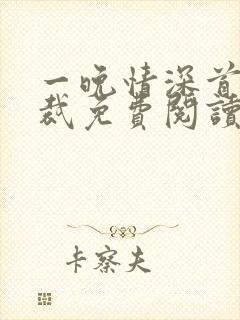 一晚情深首
裁免費閱讀
卡察夫